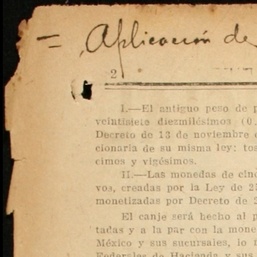 = Aplicación de
2
I.—El antiguo peso de p
veintisiete diezmilésimos (0,
Decreto de 13 de noviembre d
cionaria de su misma ley; tos
cimos y vigésimos.
II.—Las monedas de cinc
vos, creadas por la Ley de 25
monetizadas por Decreto de 2
El canje será hecho al p
tadas y a la par con la mone
México y sus sucursales, lo
Federales de Hacienda y sus